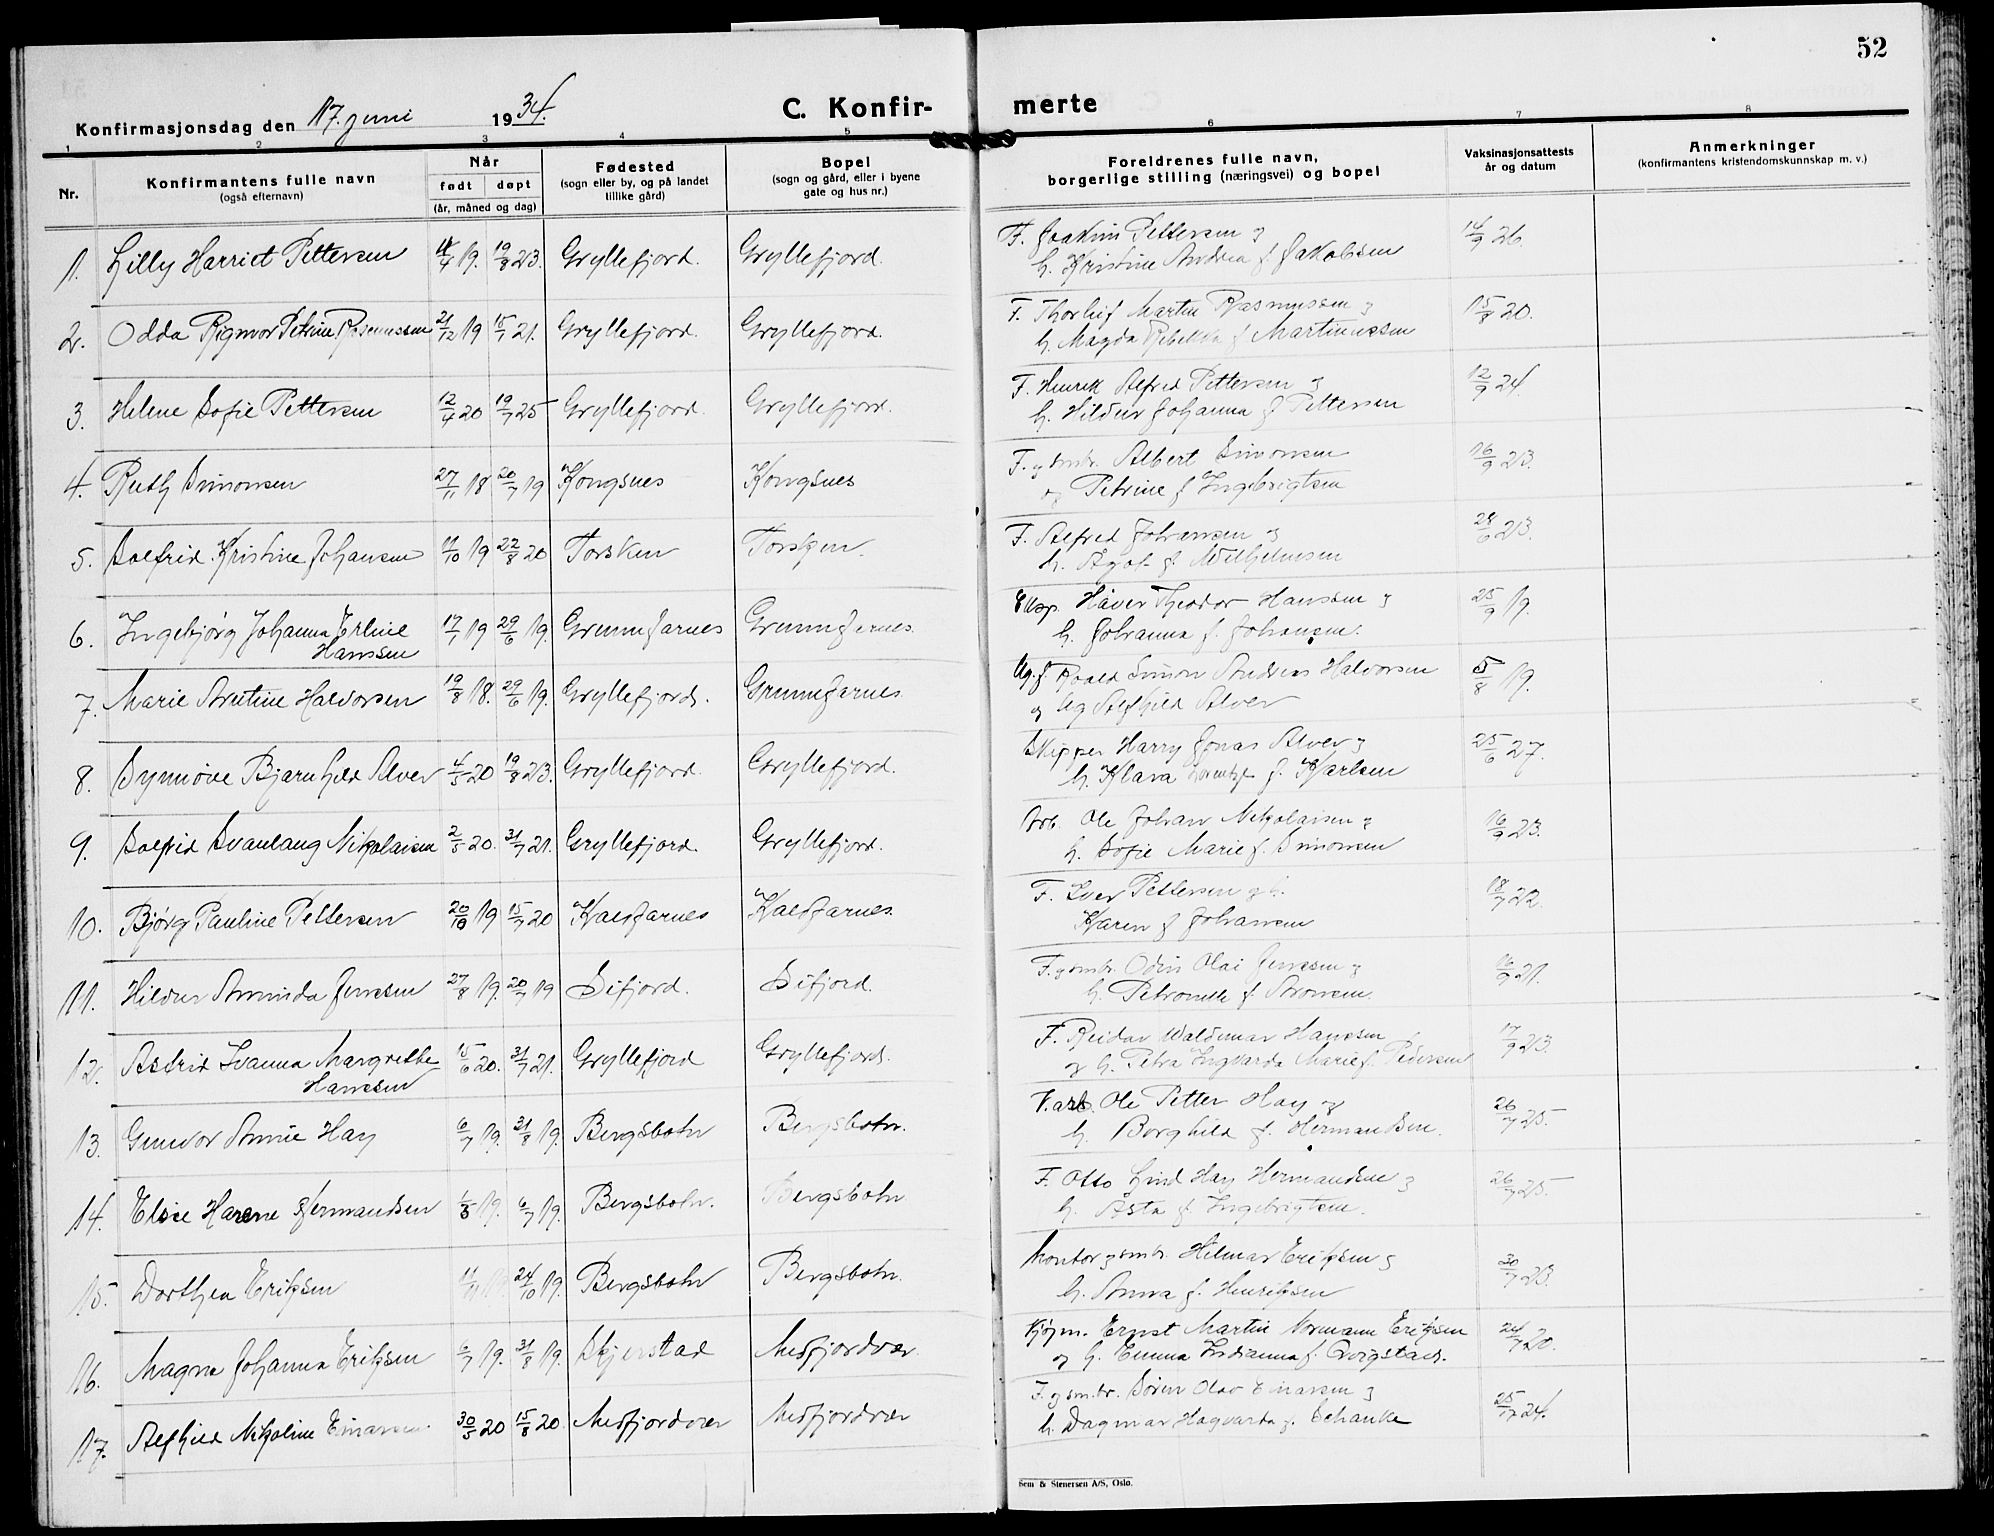 52
Konfirmasjonsdag den 17. juni 1934.
C. Konfir-
merte
1 2 3 4 5 6 7 8
Nr.
Konfirmantens fulle navn
(også efternavn)
Når
født døpt
(år, måned og dag)
Fødested
(sogn eller by, og på landet
tillike gård)
Bopel
(sogn og gård, eller i byene
gate og hus nr.)
Foreldrenes fulle navn,
borgerlige stilling (næringsvei) og bopel
Vaksinasjonsattests
år og datum
Anmerkninger
(konfirmantens kristendomskunnskap m. v.)
1. Lilly Harriet Pettersen 4/4 19. 19/8 23. Gryllefjord. Gryllefjord. F. Joakim Pettersen og 14/9 26.
h. Kristine Andrea f. Jakobsen
2. Odda Rigmor Petrine Rasmussen 21/12 19 15/7 21. Gryllefjord. Gryllefjord. F. Thorleif Martin Rasmussen og 15/8 20.
h. Magda Rebekka f. Martinussen
3. Helene Sofie Pettersen 12/4 20 19/7 25 Gryllefjord. Gryllefjord. F. Henrik Alfred Pettersen og 12/9 24.
h. Hildur Johanna f. Pettersen
4. Ruth Simonsen 27/11 18 20/7 19 Kongsnes Kongsnes F. og smbr. Albert Simonsen 16/9 23.
og Petrine f. Ingebrigtsen
5. Solfrid Kristine Johansen 11/10 19 22/8 20 Torsken Torsken. F. Alfred Johansen og 28/6 23.
h. Agot f. Wilhelmsen
6. Ingebjørg Johanna Erline 17/1 19 29/6 19. Grunnfarnes Grunnfarnes. Eksp. Håver Theodor Hanssen og 25/9 19.
Hanssen h. Johanna f. Johansen.
7. Marie Arntine Halvorsen 19/8 18. 29/6 19. Gryllefjord. Grunnfarnes. Ug. f. Roald Simon Andreas Halvorsen 5/8 19.
og Ug Alfhild Alver
8. Synnøve Bjarnhild Alver 4/5 20 19/8 23. Gryllefjord. Gryllefjord. Skipper Harry Jonas Alver og 25/6 27.
h. Klara Lorentze f. Karlsen
9. Solfrid Svanlaug Nikolaisen 2/5 20. 31/7 21. Gryllefjord. Gryllefjord. Arb. Ole Johan Nikolaisen og 16/9 23.
h. Sofie Marie f. Simonsen
10. Bjørg Pauline Pettersen 20/10 19 15/7 20 Kaldfarnes Kaldfarnes. F. Iver Pettersen og h. 18/7 22.
Karen f. Johansen
11. Hildur Aminda Jenssen 27/8 19. 20/7 19 Sifjord. Sifjord. F. og smbr. Odin Olai Jenssen og 16/9 21.
h. Petronelle f. Aronsen.
12. Astrid Ivanna Margrethe 15/6 20. 31/7 21. Gryllefjord Gryllefjord. F. Reidar Waldemar Hanssen 17/9 23.
Hanssen og h. Petra Ingvarda Marie f. Pedersen
13. Gunvor Annie Hay 6/7 19. 31/8 19. Bergsbotn Bergsbotn. F. arb. Ole Petter Hay og 26/7 25.
h. Borghild f. Hermandsen.
14. Elsie Harene Hermandsen 1/5 19. 6/7 19. Bergsbotn. Bergsbotn F. Otto Lind Hay Hermandsen og 26/7 25.
h. Asta f. Ingebrigtsen.
15. Dorthea Eriksen 24/10 19. Bergsbotn Bergsbotn. Kontor og smbr. Hilmar Eriksen og 30/7 23.
h. Anna f. Henriksen
16. Magna Johanna Eriksen 6/7 19. 31/8 19. Skjerstad Mefjordvær Kjøpm. Ernst Martin Normann Eriksen 24/7 20.
og h. Emma Indianna f. Qvigstad.
17. Alfhild Nikoline Einarsen 30/5 20 15/8 20. Mefjordvær Mefjordvær F. og sm.br. Søren Olav Einarsen og 25/7 24.
h. Dagmar Hagvarda f. Schanke
Sem & Stenersen A/S, Oslo.